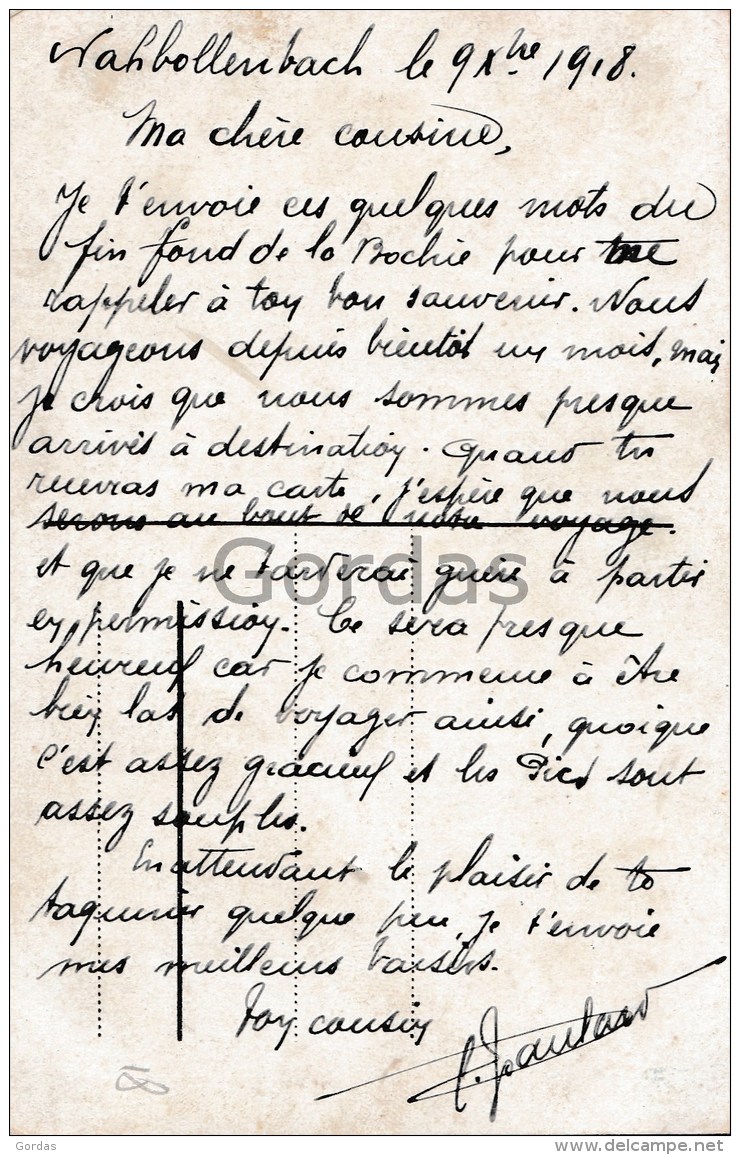 Nahbollenbach le 9 Xbre 1918.
Ma chère cousine,
Je t'envoie ces quelques mots du
fin fond de la Bochie pour me
rappeler à ton bon souvenir. Nous
voyageons depuis bientôt un mois, mais
je crois que nous sommes presque
arrivés à destination. Quand tu
recevras ma carte, j'espère que nous
serons au bout de notre voyage.
et que je ne tarderai guère à partir
en permission. Ce sera presque
heureux car je commence à être
bien las de voyager ainsi, quoique
c'est assez gracieux et les Pieds sont
assez souples.
En attendant le plaisir de te
taquiner quelque peu, je t'envoie
mes meilleurs baisers.
Ton cousin
Gordas
Gordas
delcampe.net